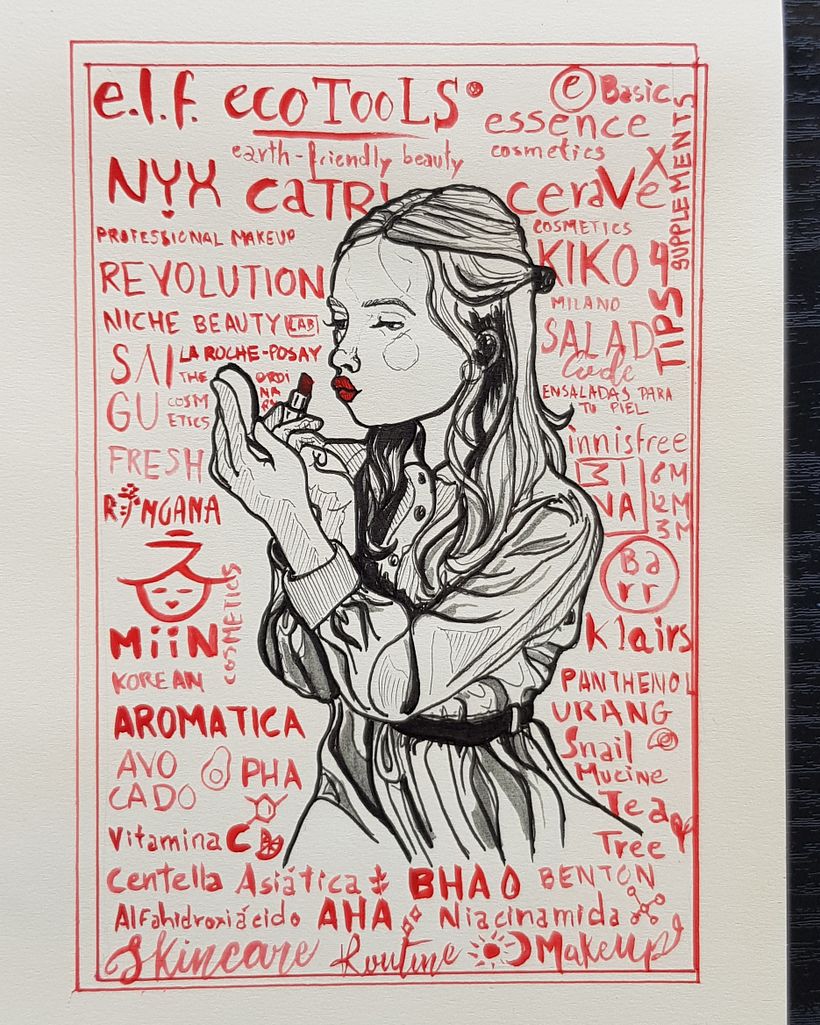 e.l.f. ecoTOOLS
earth-friendly beauty
e Basic
essence
cosmetics
NYX
PROFESSIONAL MAKEUP
CATRI
ceraVe
X
SUPPLEMENTS
COSMETICS
KIKO
MILANO
TIPS 4
REVOLUTION
NICHE BEAUTY LAB
SAI
GU
COSMETICS
LA ROCHE-POSAY
THE ORDINARY
SALAD
Code
ENSALADAS PARA
TU PIEL
FRESH
innisfree
RINGANA
MINA
6M
12M
3M
Barr
MiiN
COSMETICS
KOREAN
Klairs
AROMATICA
PANTHENOL
URANG
AVO
CADO
PHA
Snail
Mucine
Vitamina C
Tea
Tree
Centella Asiática
BHA
BENTON
Alfahidroxiácido AHA
Niacinamida
Skincare Routine
Makeup